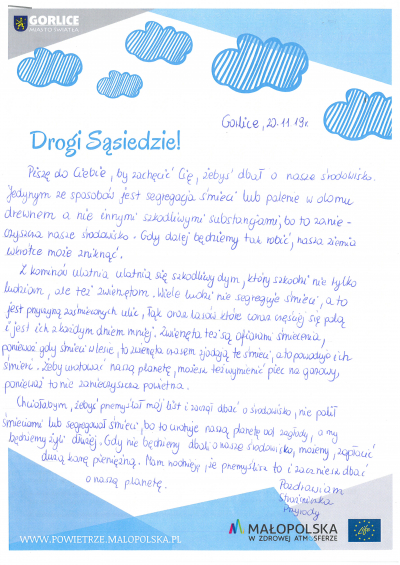 GORLICE
MIASTO ŚWIATŁA
Gorlice, 20.11.19r.
Drogi Sąsiedzie!
Piszę do Ciebie, by zachęcić Cię, żebyś dbał o nasze środowisko.
Jedynym ze sposobów jest segregacja śmieci lub palenie w domu
drewnem a nie innymi szkodliwymi substancjami, bo to zanie-
czyszcza nasze środowisko. Gdy dalej będziemy tak robić, nasza ziemia
wkrótce może zniknąć.
Z kominów ulatnia ulatnia się szkodliwy dym, który szkodzi nie tylko
ludziom, ale też zwierzętom. Wiele ludzi nie segreguje śmieci, a to
jest przyczyną zaśmieconych ulic, łąk oraz lasów które coraz częściej się palą
i jest ich z każdym dniem mniej. Zwierzęta też są ofiarami śmiecenia,
ponieważ gdy śmieci w lesie, to zwierzęta czasem zjadają te śmieci, a to powoduje ich
śmierć. Żeby uratować naszą planetę, możesz też wymienić piec na gazowy,
ponieważ to nie zanieczyszcza powietrza.
Chciałabym, żebyś przemyślał mój list i zaczął dbać o środowisko, nie palił
śmieciami lub segregował śmieci, bo to uratuje naszą planetę od zagłady, a my
będziemy żyli dłużej. Gdy nie będziemy dbali o nasze środowisko, możemy zapłacić
dużą karę pieniężną. Mam nadzieję, że przemyślisz to i zaczniesz dbać
o naszą planetę.
Pozdrawiam
Strażniczka
Przyrody
WWW.POWIETRZE.MALOPOLSKA.PL
MAŁOPOLSKA
W ZDROWEJ ATMOSFERZE